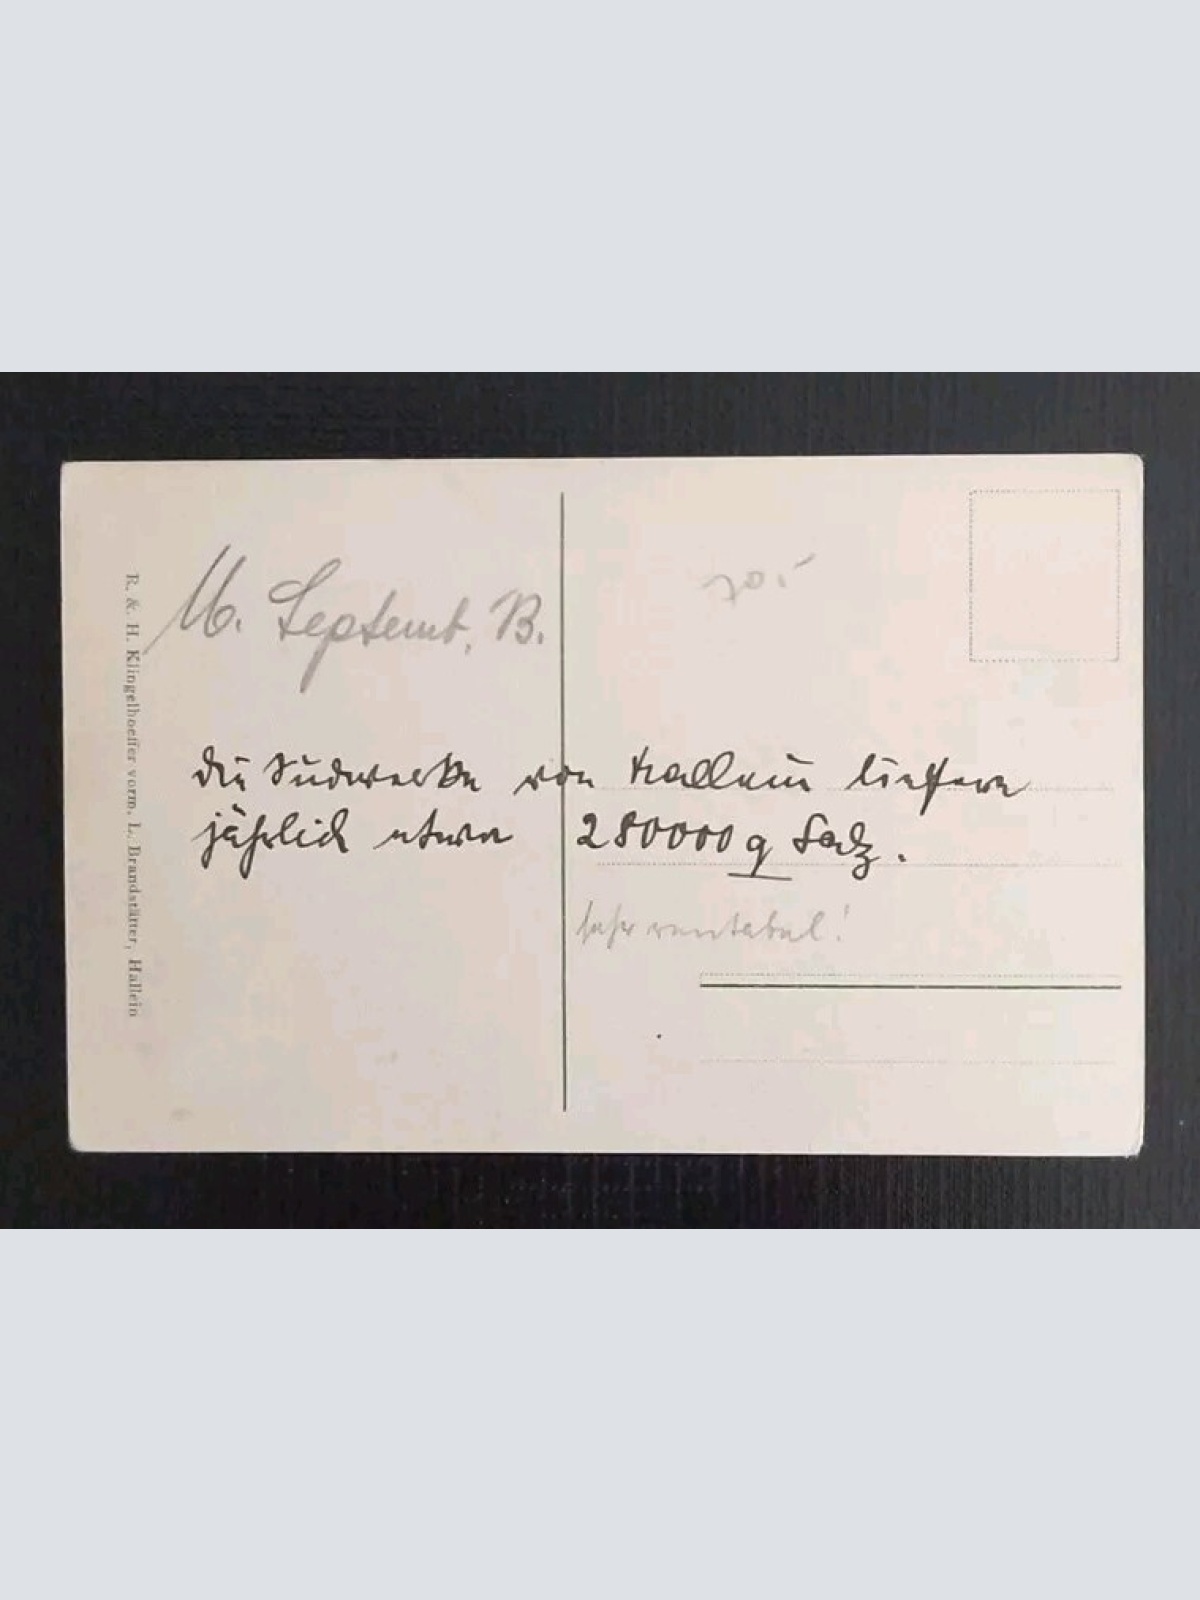 R. & H. Klingelhoeffer vorm. L. Brandstätter, Hallein
Septemb. B.
70.-
die Sudwerke von Hallein liefern
jährlich etwa 280000 q Salz.
sehr rentabel!